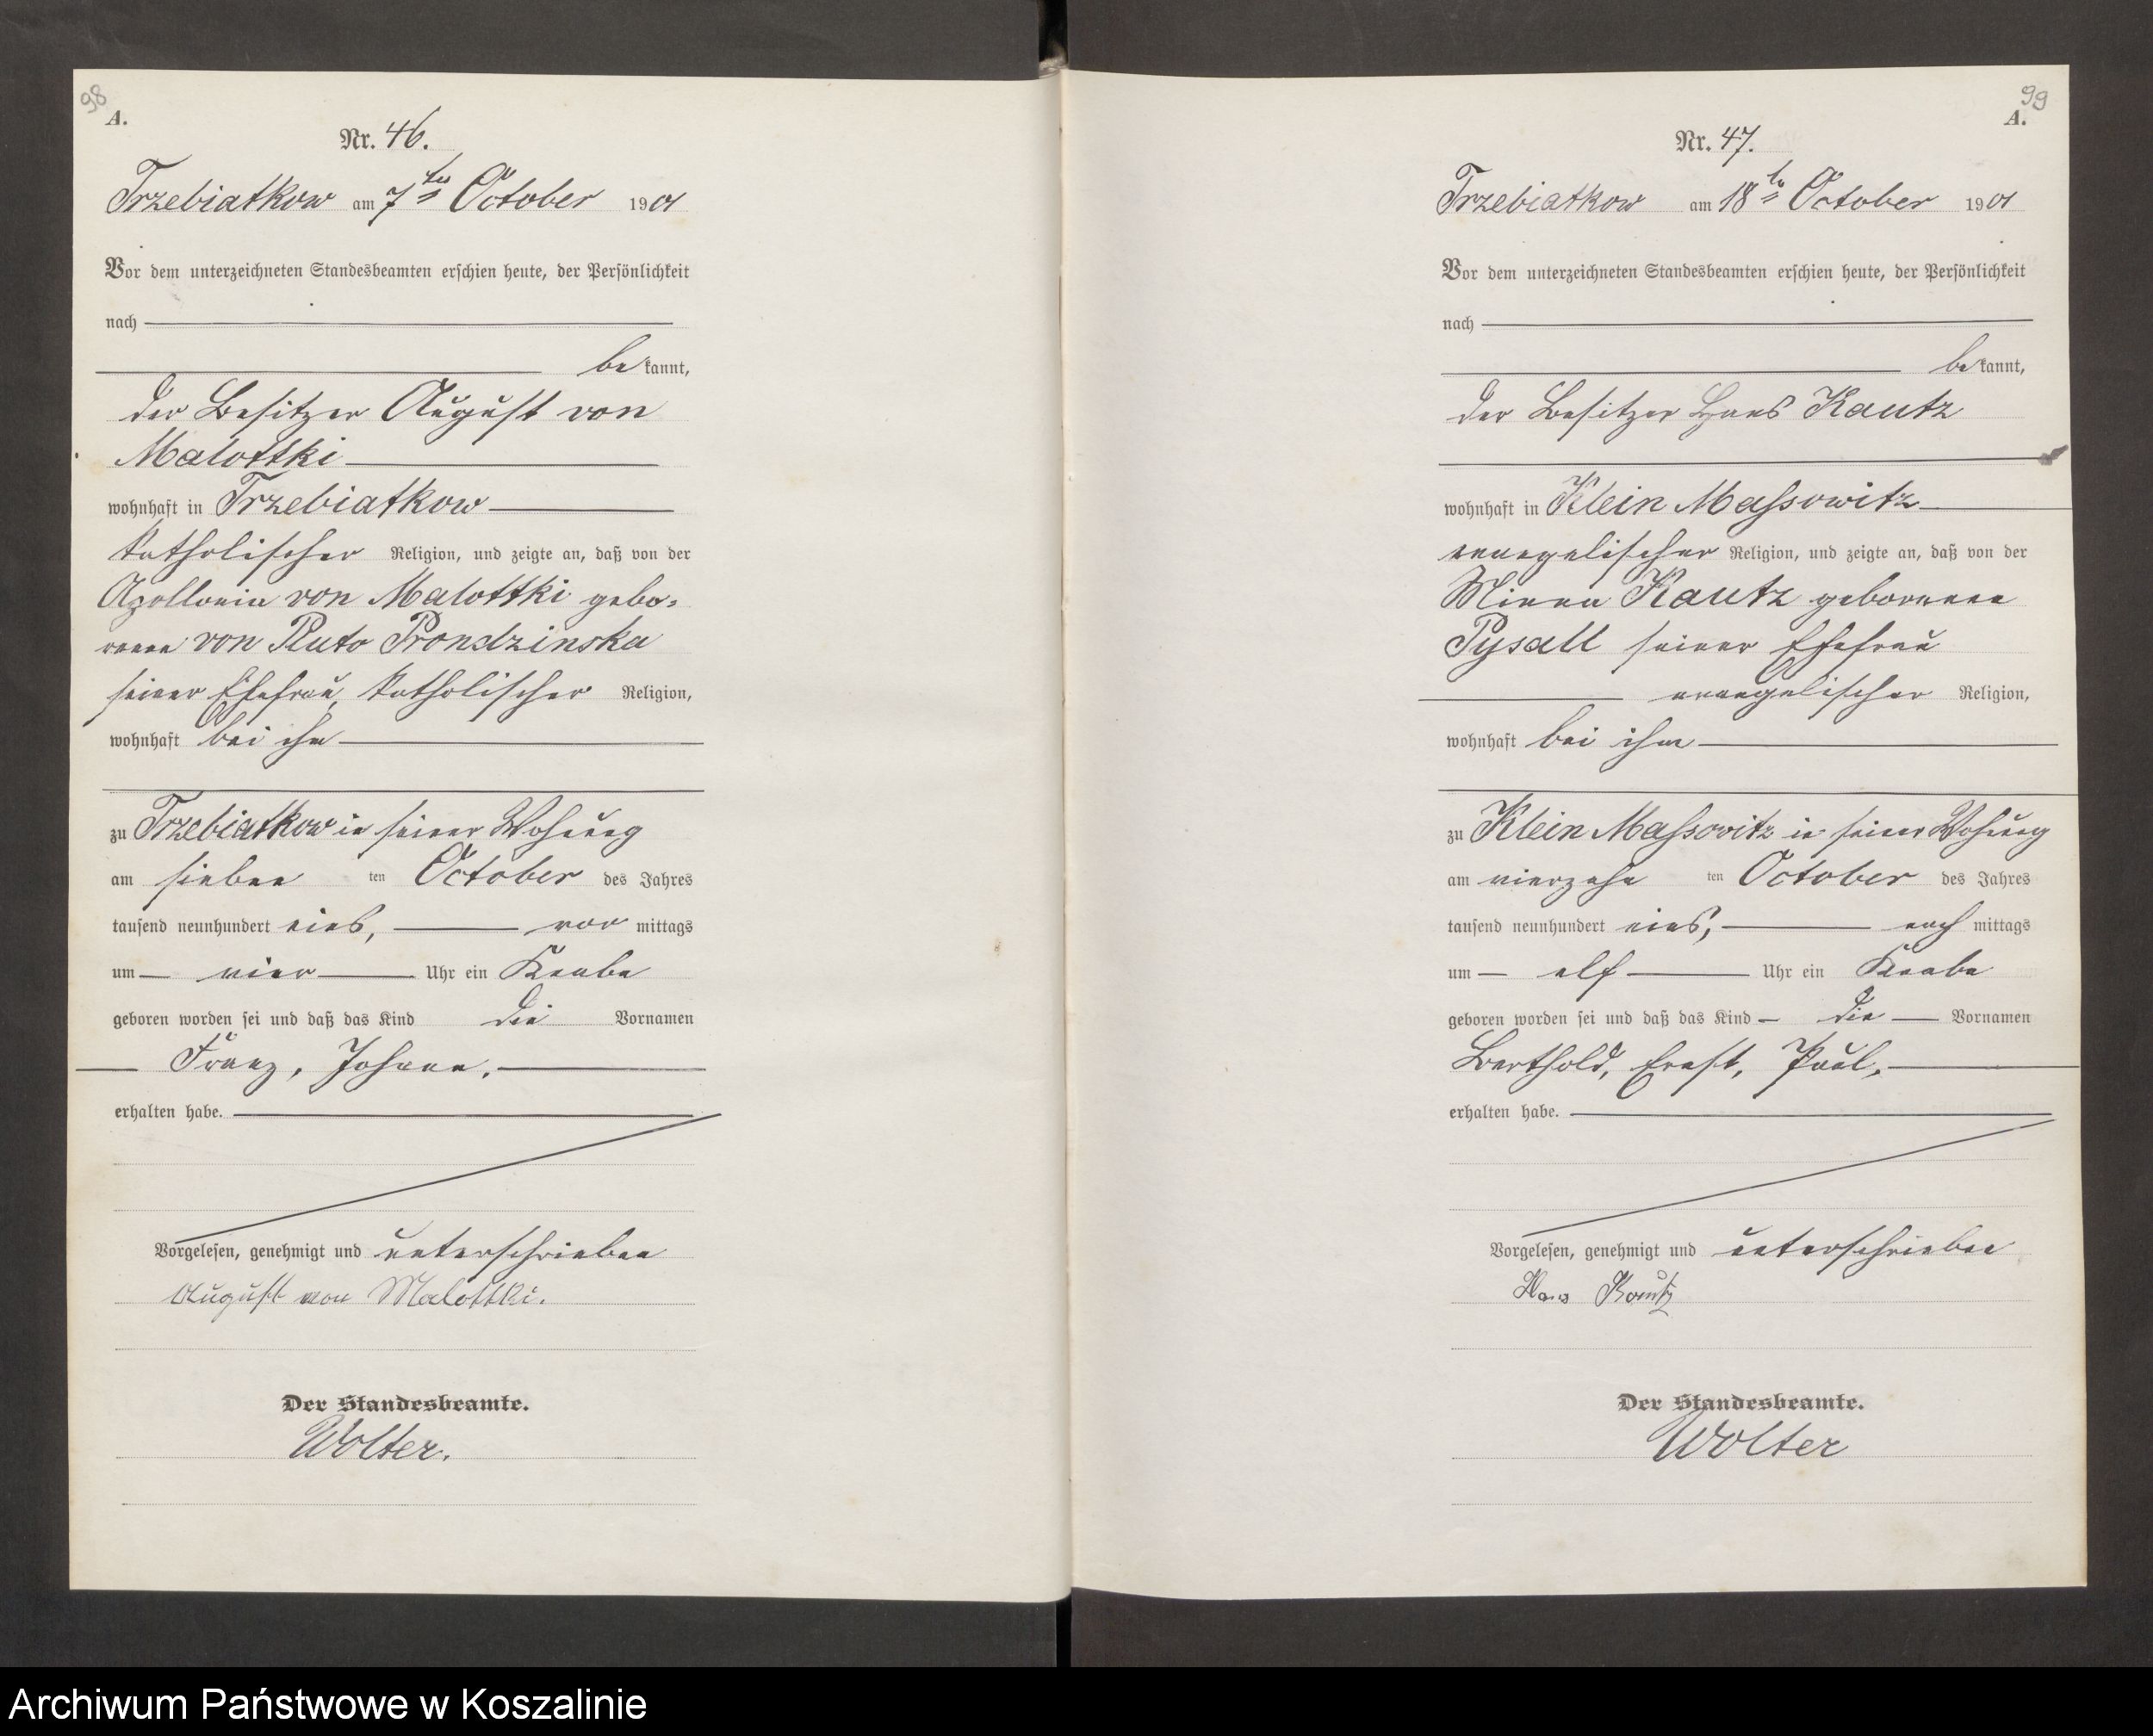 98
A.
Nr. 46.
Trzebiatkow am 7ten October 1901
Vor dem unterzeichneten Standesbeamten erschien heute, der Persönlichkeit
nach
bekannt,
der Besitzer August von
Malottki
wohnhaft in Trzebiatkow
katholischer Religion, und zeigte an, daß von der
Apollonia von Malottki gebo-
renen von Pluto Prondzinska
seiner Ehefrau, katholischer Religion,
wohnhaft bei ihm
zu Trzebiatkow in seiner Wohnung
am sieben ten October des Jahres
tausend neunhundert eins, vor mittags
um vier Uhr ein Knabe
geboren worden sei und daß das Kind die Vornamen
Franz, Johann,
erhalten habe.
Vorgelesen, genehmigt und unterschrieben
August von Malottki.
Der Standesbeamte.
Wolter.
99
A.
Nr. 47.
Trzebiatkow am 18ten October 1901
Vor dem unterzeichneten Standesbeamten erschien heute, der Persönlichkeit
nach
bekannt,
der Besitzer Hans Kautz
wohnhaft in Klein Massowitz
evangelischer Religion, und zeigte an, daß von der
Minna Kautz geborenen
Pysall seiner Ehefrau
evangelischer Religion,
wohnhaft bei ihm
zu Klein Massowitz in seiner Wohnung
am vierzehn ten October des Jahres
tausend neunhundert eins, nach mittags
um elf Uhr ein Knabe
geboren worden sei und daß das Kind die Vornamen
Berthold, Ernst, Paul,
erhalten habe.
Vorgelesen, genehmigt und unterschrieben
Hans Kautz
Der Standesbeamte.
Wolter
Archiwum Państwowe w Koszalinie